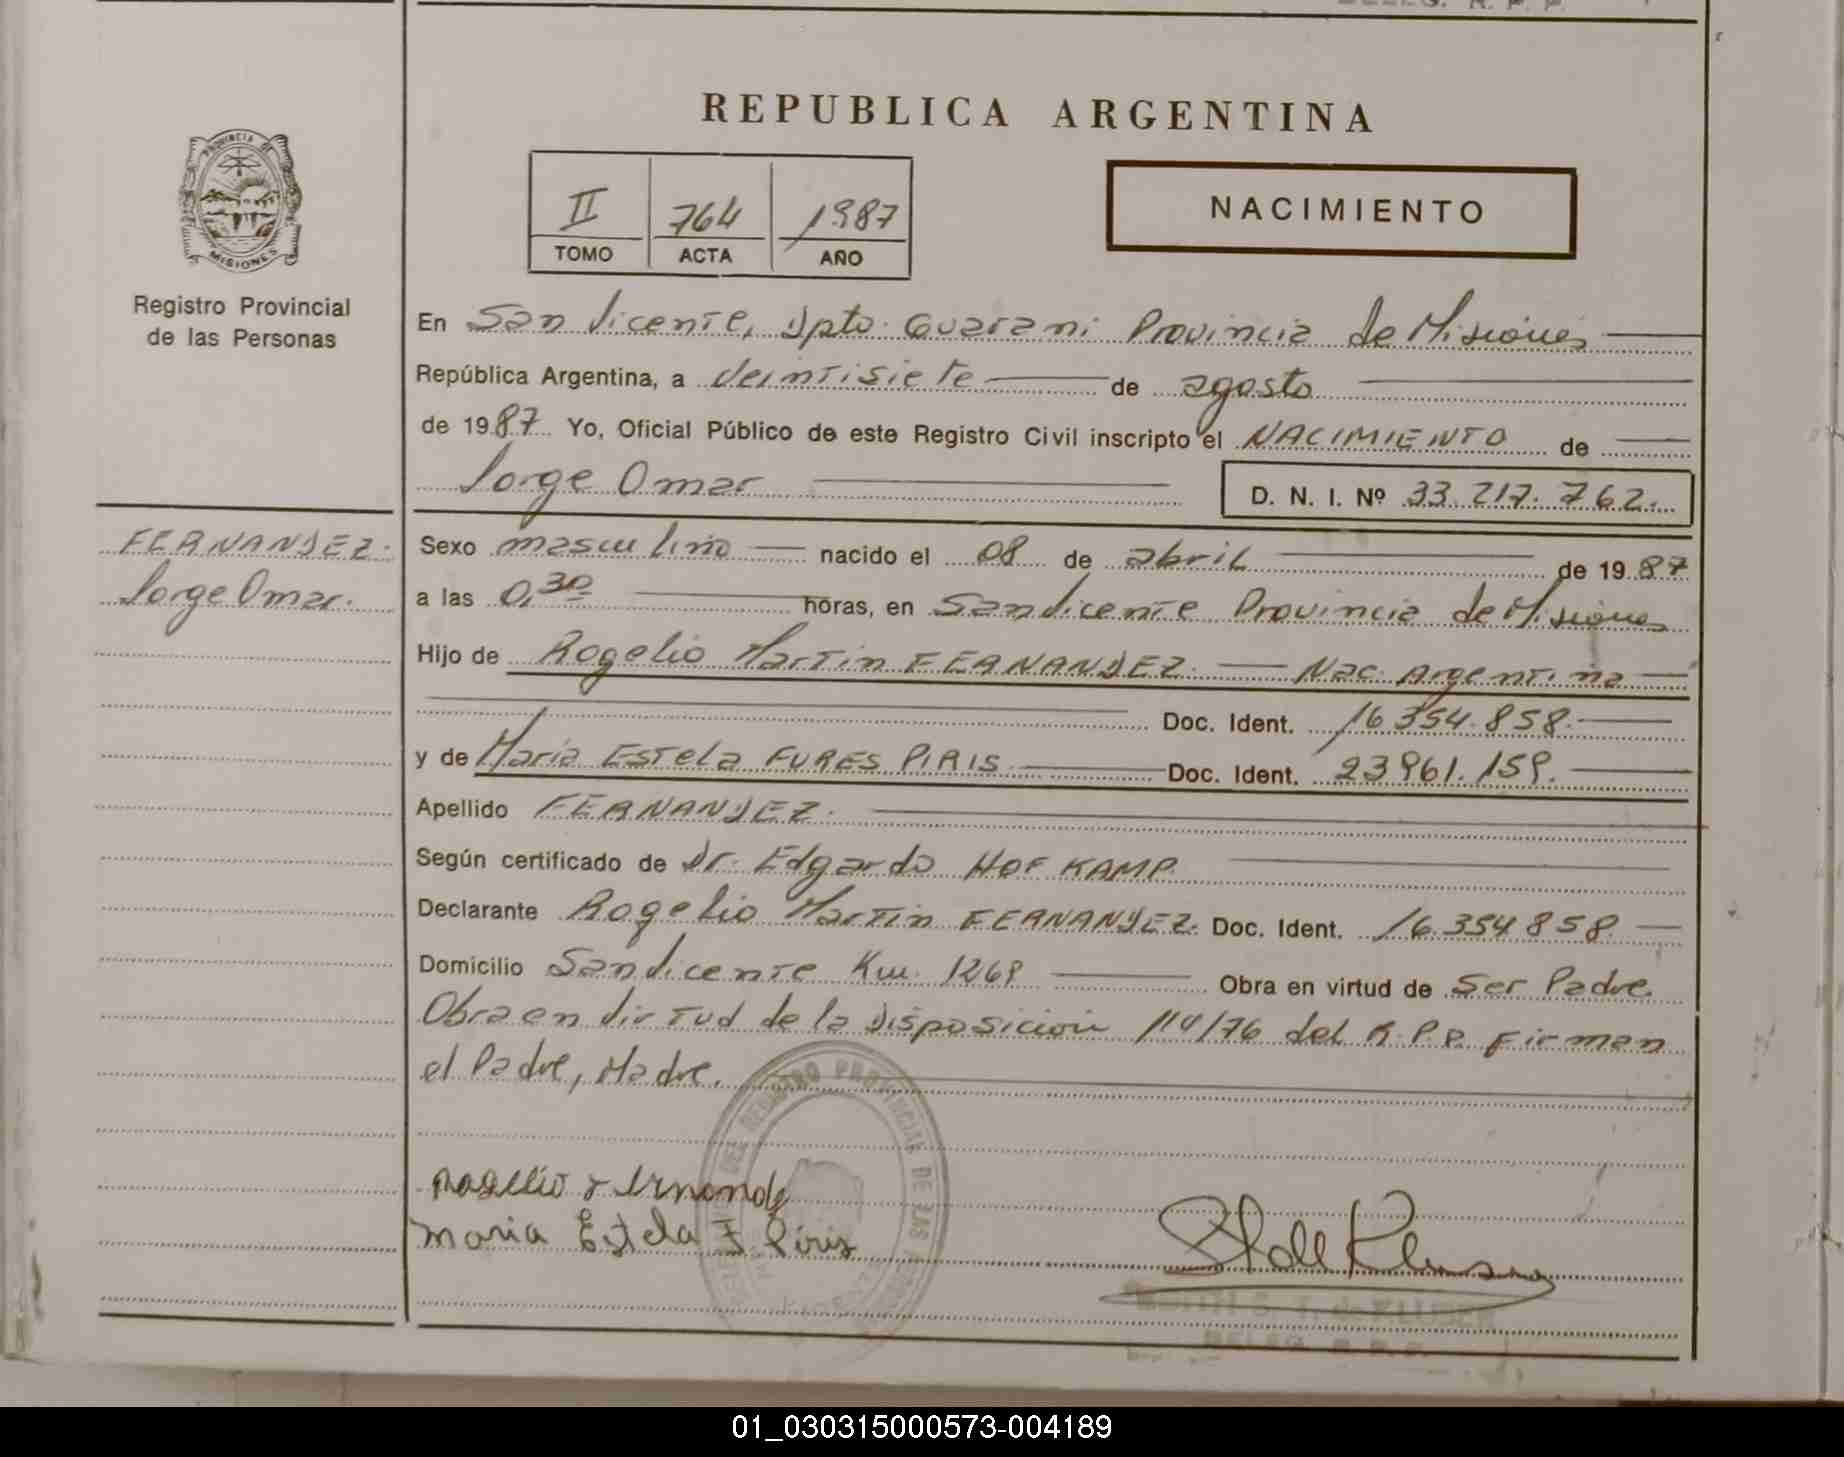 REPUBLICA ARGENTINA
PROVINCIA DE
MISIONES
Registro Provincial
de las Personas
II 764 1987
TOMO ACTA AÑO
NACIMIENTO
En San Vicente, Dpto. Guarani Provincia de Misiones
República Argentina, a veintisiete de agosto
de 1987 Yo, Oficial Público de este Registro Civil inscripto el NACIMIENTO de
Jorge Omar D. N. I. Nº 33.217.762.
FERNANDEZ.
Jorge Omar.
Sexo masculino nacido el 08 de abril de 1987
a las 0,30 horas, en San Vicente Provincia de Misiones
Hijo de Rogelio Martin FERNANDEZ. Nac. Argentina
Doc. Ident. 16.354.858.
y de Maria Estela FURES PIRIS Doc. Ident. 23961.159.
Apellido FERNANDEZ.
Según certificado de Dr. Edgardo HOFKAMP.
Declarante Rogelio Martin FERNANDEZ. Doc. Ident. 16.354858.
Domicilio San Vicente Km. 1269 Obra en virtud de Ser Padre.
Obra en virtud de la Disposicion 114/76 del R.P.P. Firman
el Padre, Madre.
DEL REGISTRO PROVINCIAL DE LAS
Rogelio Fernandez
Maria Estela F. Piris
de KLUBER
DELEG. R. P. P.
01_030315000573-004189